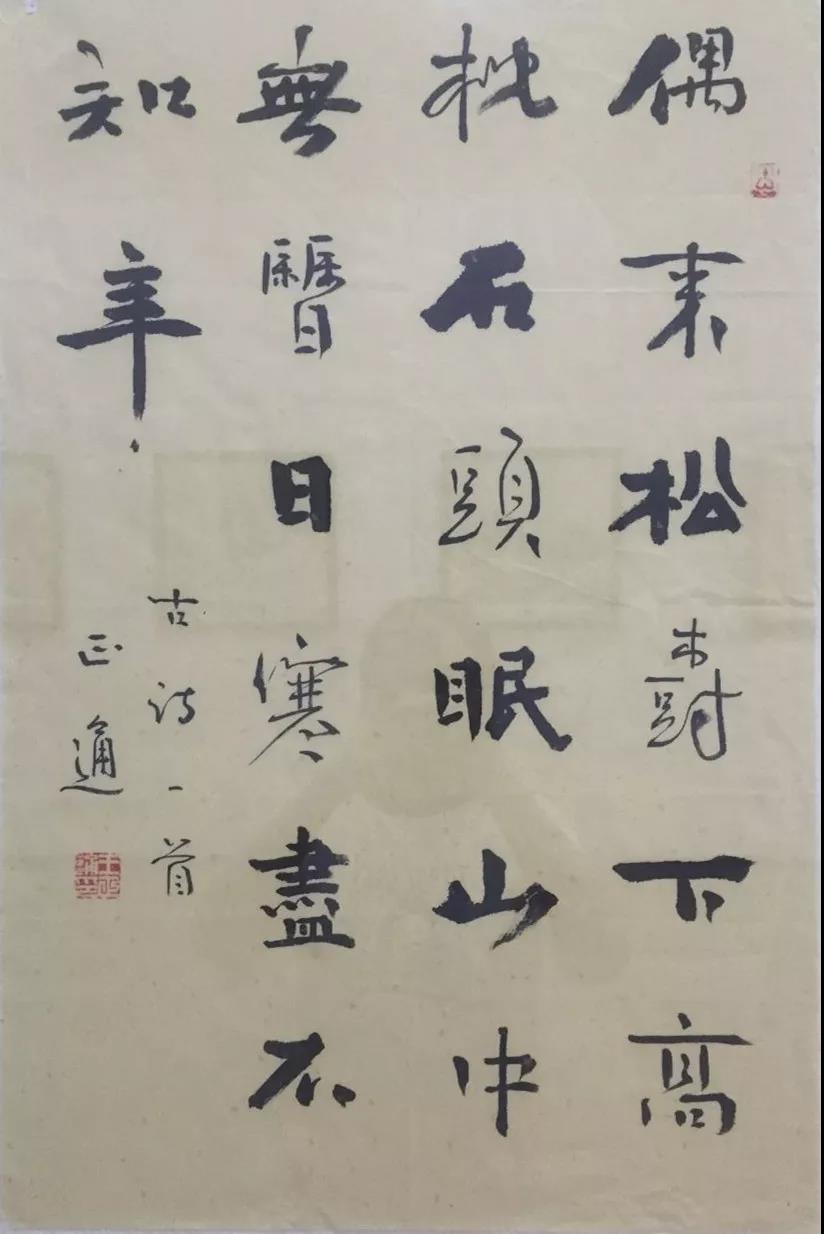 偶来松樹下高
枕石頭眠山中
無曆日寒盡不
知年
古诗一首
正通